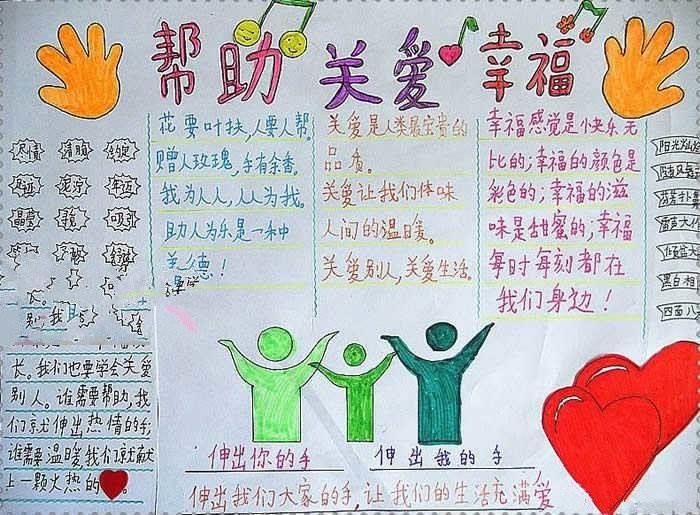 帮助 关爱 幸福
花要叶扶,人要人帮。
赠人玫瑰,手有余香。
我为人人,人人为我。
助人为乐是一种
美德!
关爱是人类最宝贵的
品质。
关爱让我们体味
人间的温暖。
关爱别人,关爱生活。
幸福感觉是快乐无
比的;幸福的颜色是
彩色的;幸福的滋
味是甜蜜的;幸福
每时每刻都在
我们身边!
尽情
清晰
晶莹
吸引
阳光灿烂
雷声大作
黑白相
四面八
别 我
长。我们也要学会关爱
别人。谁需要帮助,我
们就伸出热情的手;
谁需要温暖我们就献
上一颗火热的
伸出你的手
伸出我的手
伸出我们大家的手,让我们的生活充满爱